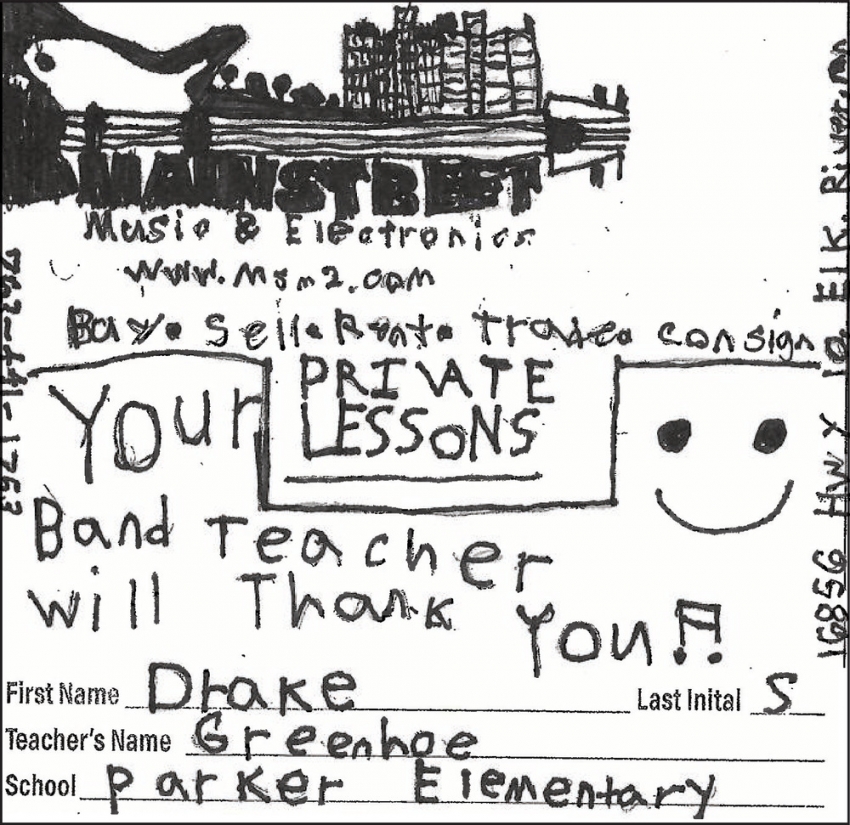 MAINSTREET
Music & Electronics
www.Msm2.com
Buy • Sell • Rent • Trade • consign
PRIVATE
LESSONS
Your
Band Teacher
will Thank
You
763-441-1763
16856 HWY 10, Elk River, MN
First Name Drake Last Inital S
Teacher's Name Greenhoe
School Parker Elementary